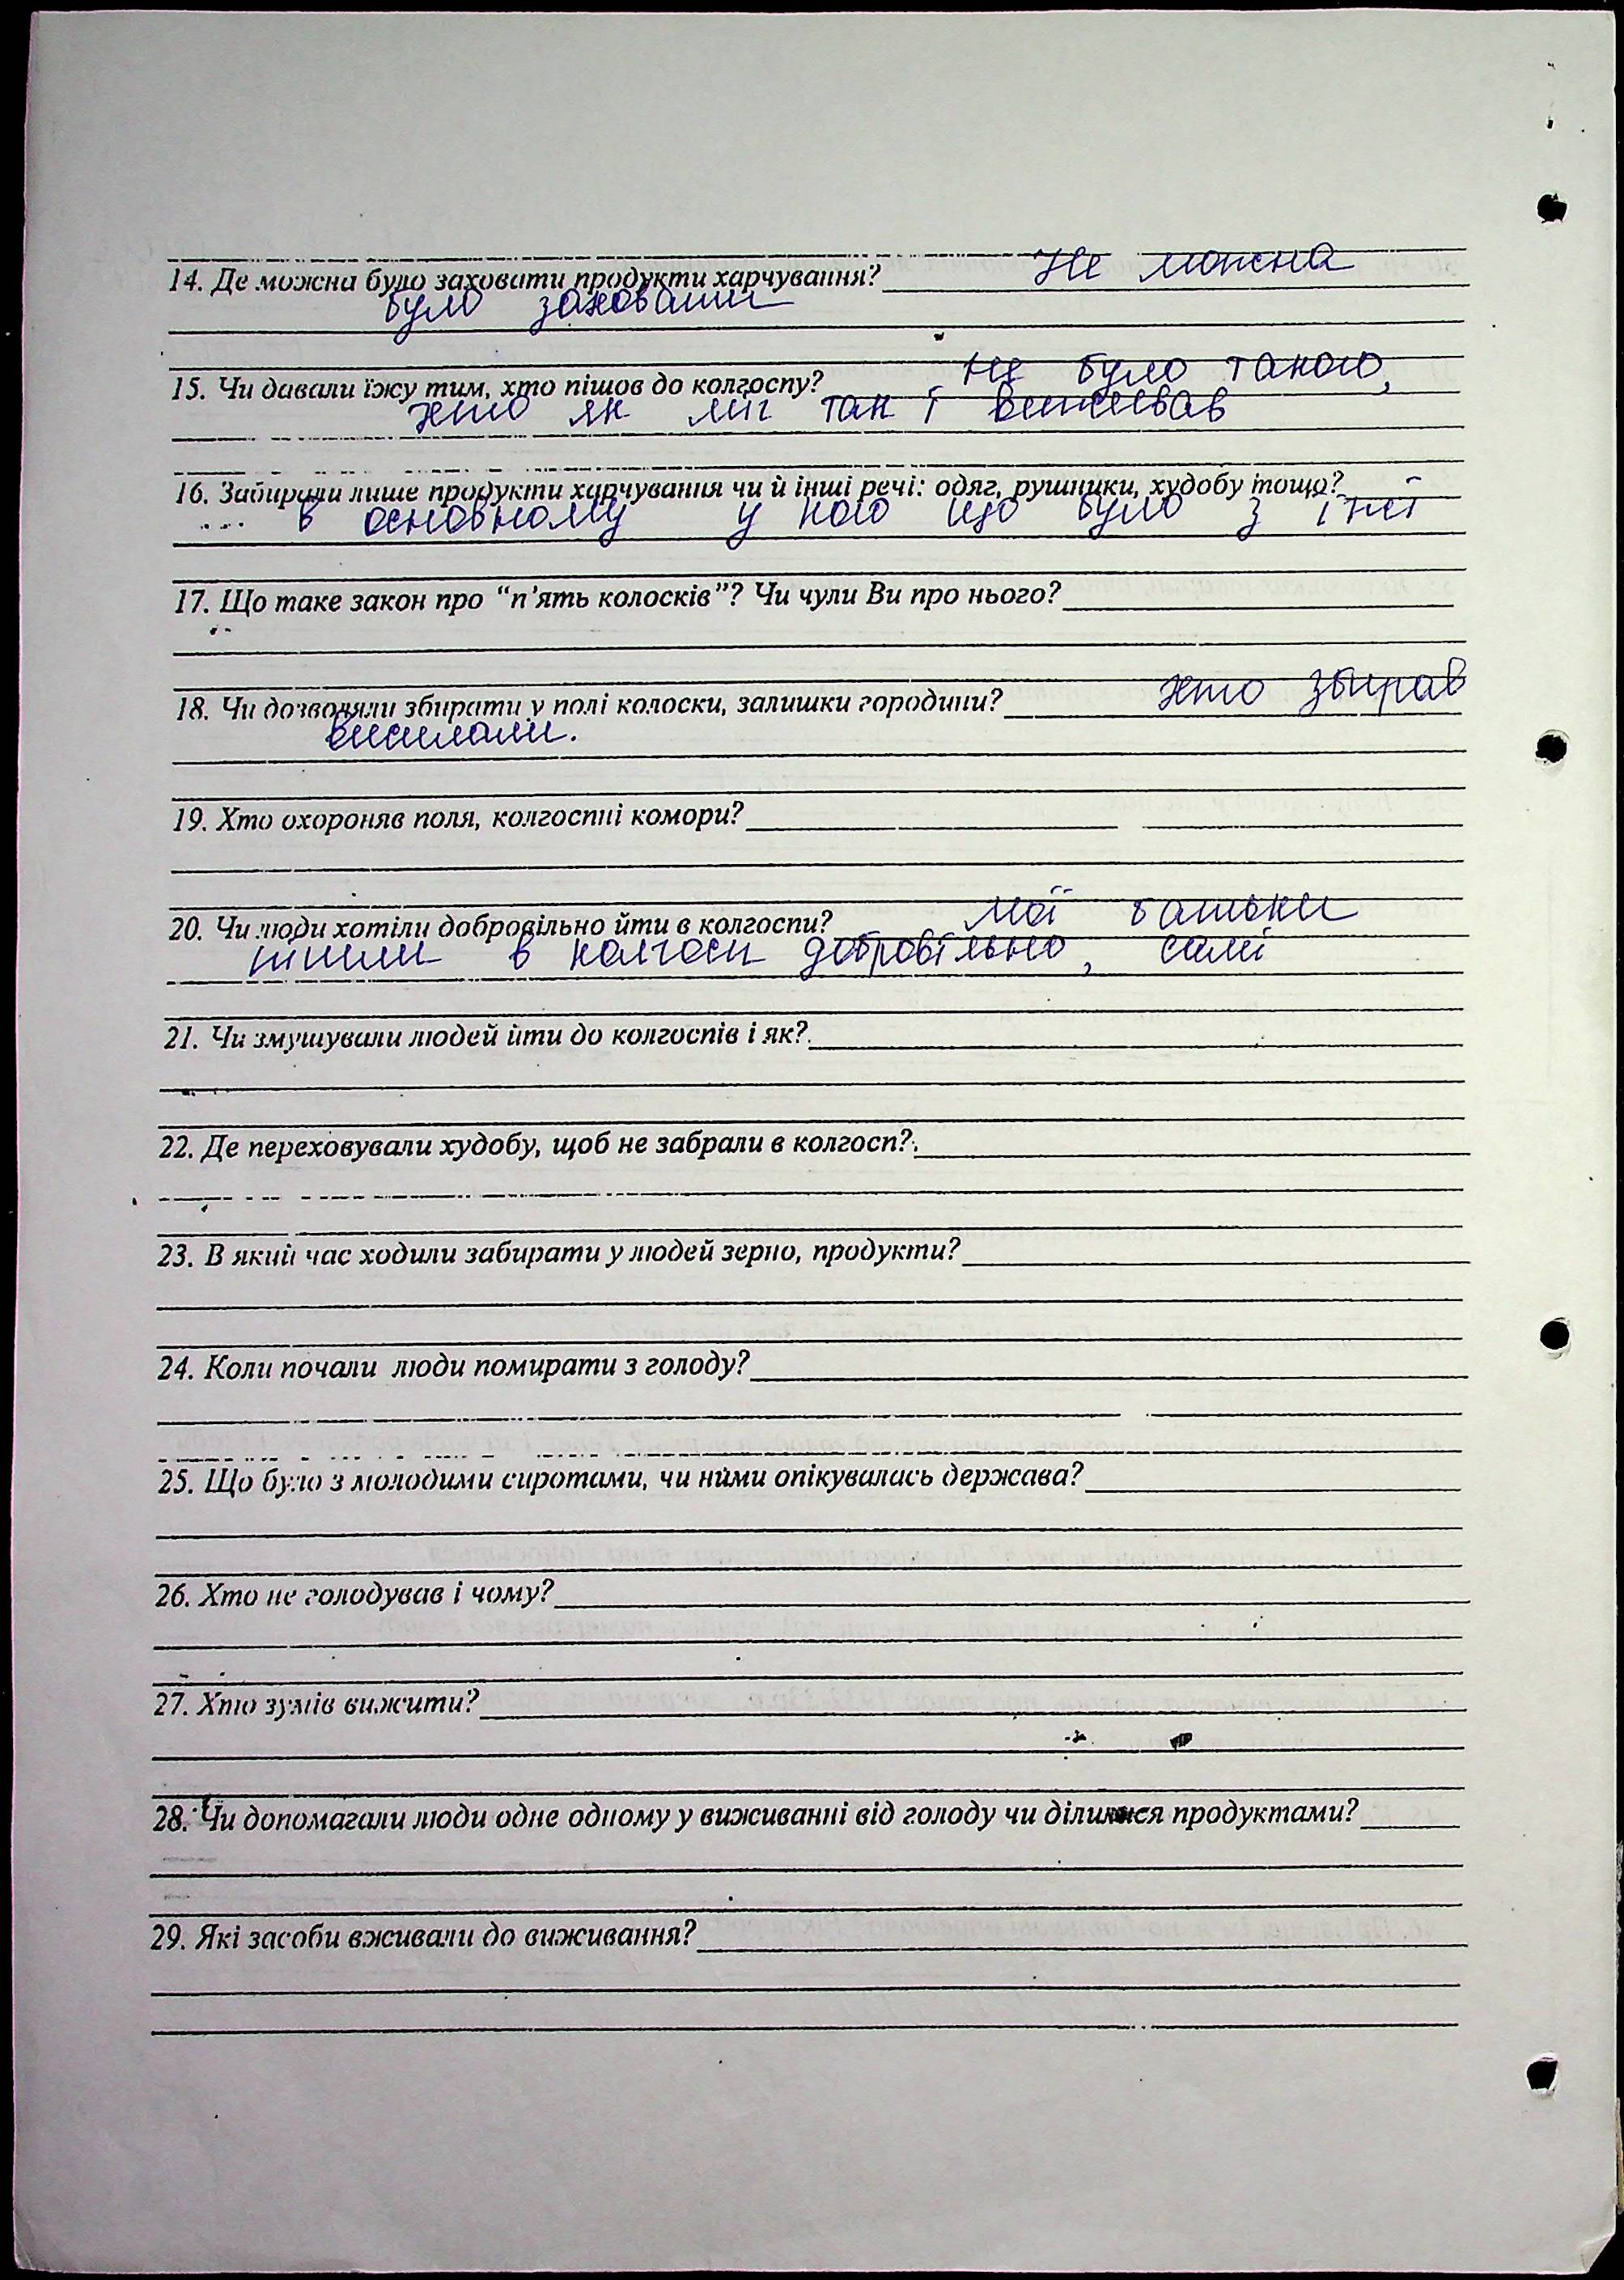 14. Де можна було заховати продукти харчування? Не можна
було заховати
15. Чи давали їжу тим, хто пішов до колгоспу? Не було такого,
хто як міг так і виживав
16. Забирали лише продукти харчування чи й інші речі: одяг, рушники, худобу тощо?
в основному у кого що було з їжі
17. Що таке закон про “п’ять колосків”? Чи чули Ви про нього?
18. Чи дозволяли збирати у полі колоски, залишки городини? хто збирав
висилали.
19. Хто охороняв поля, колгоспні комори?
20. Чи люди хотіли добровільно йти в колгоспи? мої батьки
пішли в колгосп добровільно, самі
21. Чи змушували людей йти до колгоспів і як?
22. Де переховували худобу, щоб не забрали в колгосп?
23. В який час ходили забирати у людей зерно, продукти?
24. Коли почали люди помирати з голоду?
25. Що було з молодими сиротами, чи ними опікувалась держава?
26. Хто не голодував і чому?
27. Хто зумів вижити?
28. Чи допомагали люди одне одному у виживанні від голоду чи ділилися продуктами?
29. Які засоби вживали до виживання?